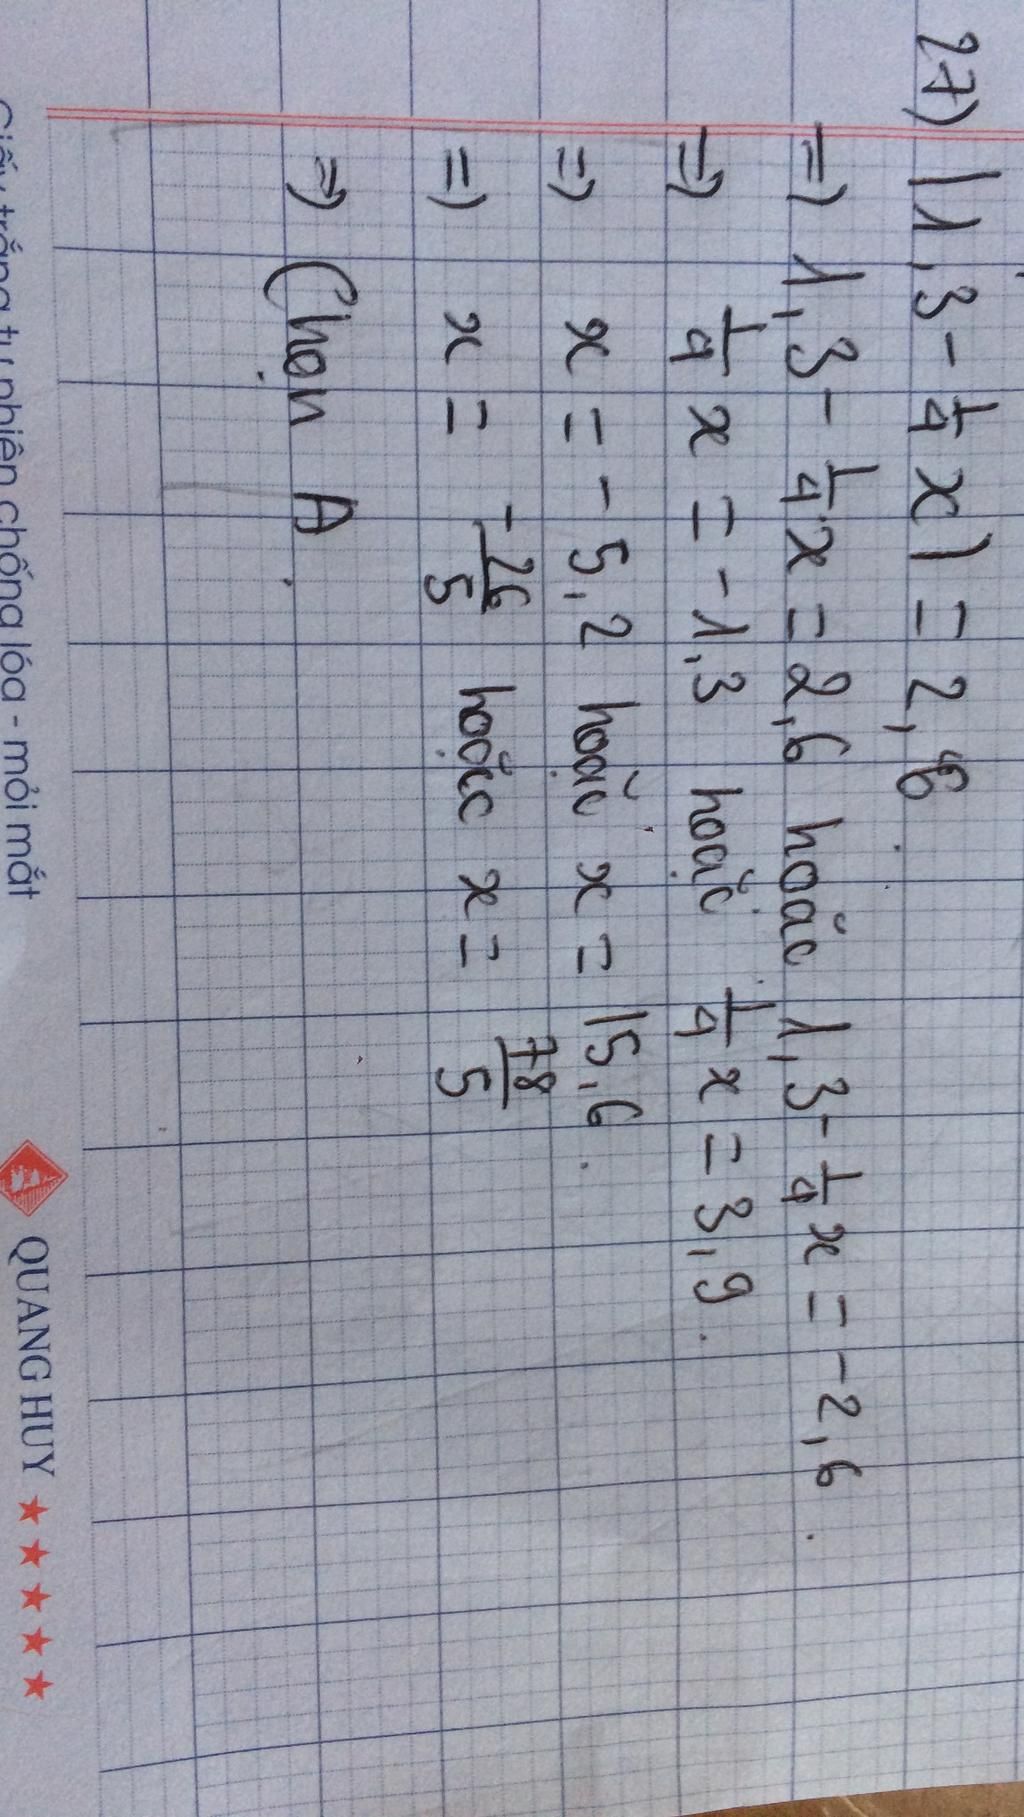 27) |1,3 - 1/4 x| = 2,6.
=> 1,3 - 1/4 x = 2,6 hoặc 1,3 - 1/4 x = -2,6.
=> 1/4 x = -1,3 hoặc 1/4 x = 3,9.
=> x = -5,2 hoặc x = 15,6.
=> x = -26/5 hoặc x = 78/5
=> Chọn A.
Giấy trắng tự nhiên chống lóa - mỏi mắt QUANG HUY